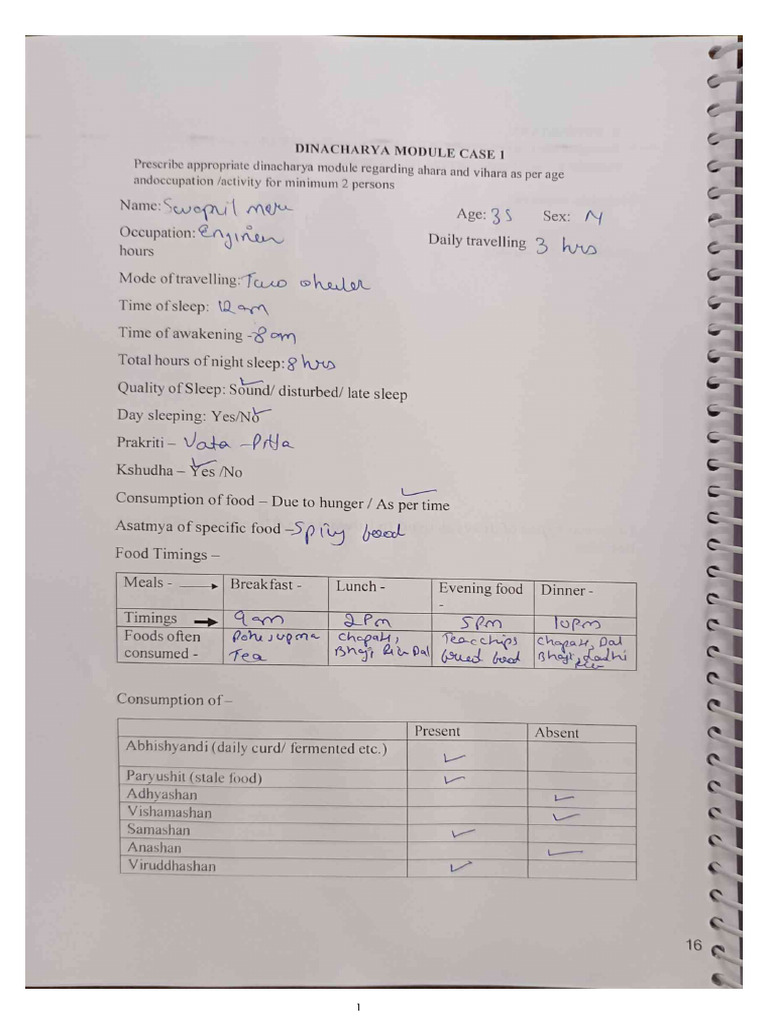 DINACHARYA MODULE CASE 1
Prescribe appropriate dinacharya module regarding ahara and vihara as per age
andoccupation /activity for minimum 2 persons
Name: Swapnil more Age: 35 Sex: M
Occupation: Enginer Daily travelling 3 hrs
hours
Mode of travelling: Two wheeler
Time of sleep: 12am
Time of awakening - 8am
Total hours of night sleep: 8 hrs
Quality of Sleep: Sound/ disturbed/ late sleep
Day sleeping: Yes/No
Prakriti – Vata - Pitta
Kshudha – Yes /No
Consumption of food – Due to hunger / As per time
Asatmya of specific food – Spicy food
Food Timings –
Meals - Breakfast - Lunch - Evening food - Dinner -
Timings 9am 2Pm 5Pm 10Pm
Foods often Pohe, upma Chapati, Tea chips Chapati, Dal
consumed - Tea Bhaji Dal fried food Bhaji
Consumption of –
Present Absent
Abhishyandi (daily curd/ fermented etc.)
Paryushit (stale food)
Adhyashan
Vishamashan
Samashan
Anashan
Viruddhashan
16
1